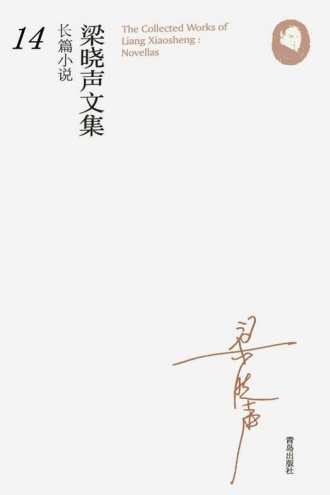 14
梁晓声文集
长篇小说
The Collected Works of
Liang Xiaosheng :
Novellas
梁晓声
青岛出版社